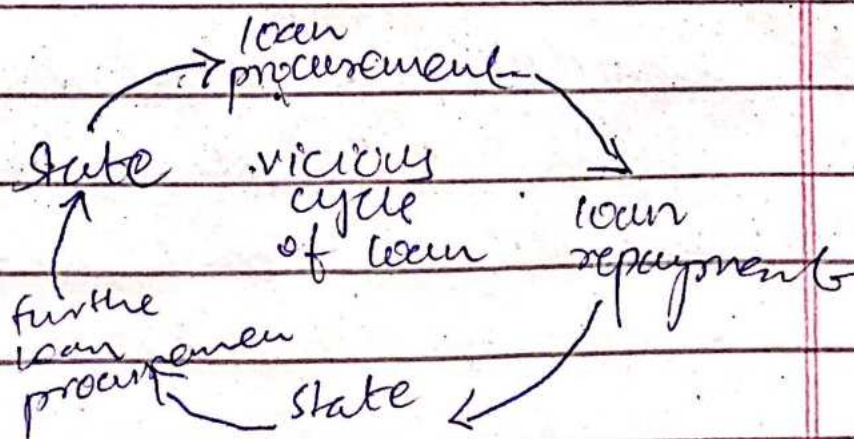 loan
procurement
State
vicious
cycle
of loan
loan
repayment
state
furthe
loan
procuremen